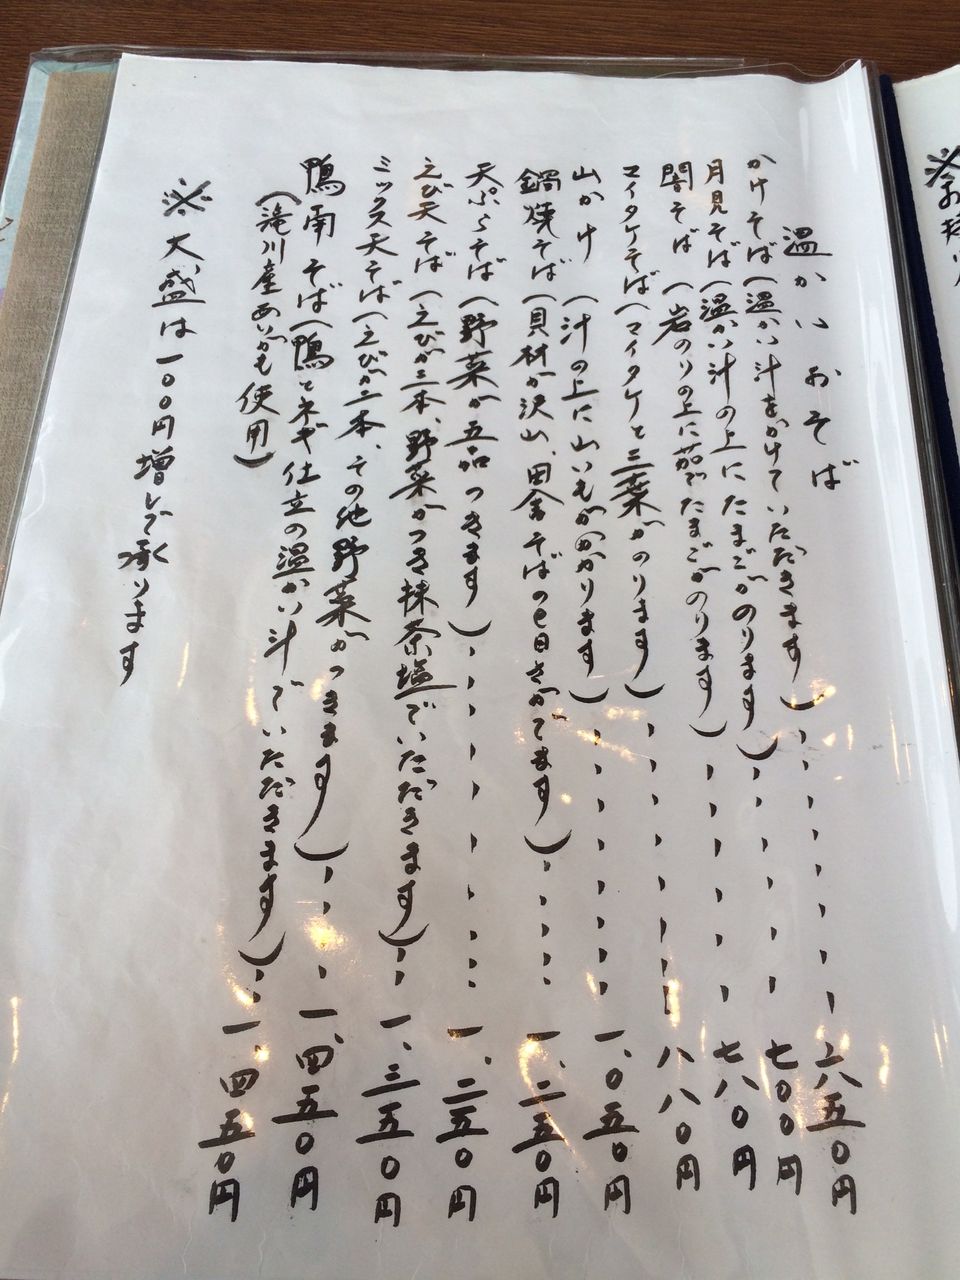 温かいおそば
かけそば(温かい汁をかけていただきます)、、、、、、六五〇円
月見そば(温かい汁の上にたまごがのります)、、、、、七〇〇円
闇そば(岩のりの上に茹でたまごがのります)、、、、、七八〇円
マイタケそば(マイタケと三葉がのります)、、、、、、八八〇円
山かけ(汁の上に山いもがかかります)、、、、、、、一、〇五〇円
鍋焼そば(具材が沢山、田舎そばの良さがでます)、、、、、一、二五〇円
天ぷらそば(野菜が五品つきます)、、、、、、、、、一、二五〇円
えび天そば(えびが三本、野菜がつき抹茶塩でいただきます)、、一、三五〇円
ミックス天そば(えびが二本、その他野菜がつきます)、、、一、四五〇円
鴨南そば(鴨とネギ仕立の温かい汁でいただきます)、、一、四五〇円
(滝川産あいがも使用)
※大盛は一〇〇円増しで承ります